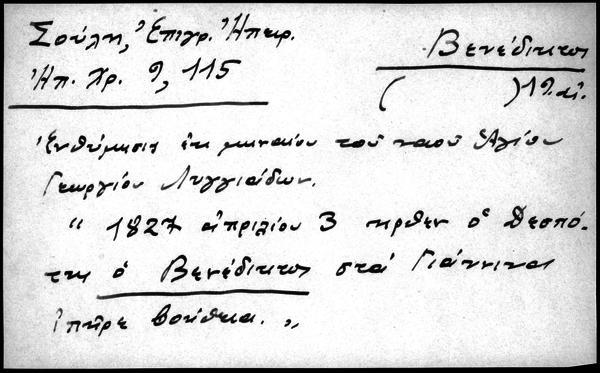 Σούλη, Ἐπιγρ. Ἠπειρ.
Ἠπ. Χρ. 9, 115
Βενέδικτος
( )19. αἰ.
Ἐνθύμησις ἐκ μηναίου τοῦ ναοῦ Ἁγίου
Γεωργίου Λυγγιάδων.
“ 1827 ἀπριλίου 3 ηρθεν ὁ Δεσπό-
της ὁ Βενέδικτος στά Γιάννινα
ἐπῆρε βοήθεια. „